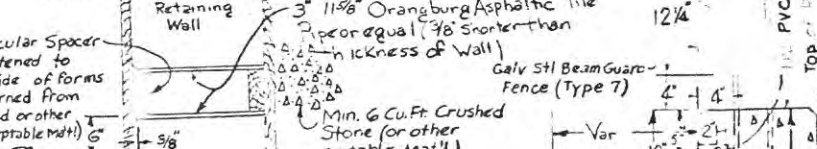 Retaining
Wall
3" 11 5/8" Orangburg Asphaltic Tile
Pipe or equal (3/8" Shorter than
Thickness of Wall)
cular Spacer
tened to
ide of forms
rned from
d or other
ptable Mat'l)
6"
5/8"
Min. 6 Cu. Ft. Crushed
Stone (or other
Galv Stl Beam Guard
Fence (Type 7)
12 1/4"
4"
4"
Var
2"
5"
10"
PVC